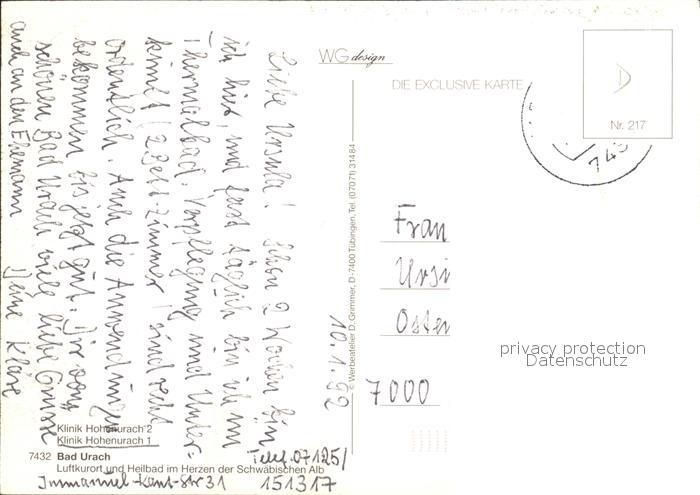 Liebe Ursula! Schon 2 Wochen bin
ich hier, und fast täglich bin ich im
Thermalbad. Verpflegung und Unter=
künft (2 Bett-Zimmer) sind recht
ordentlich. Auch die Anwendungen
bekommen bis jetzt gut. Dir vom
schönen Bad Urach viele liebe Grüsse
auch an den Ehemann Deine Kläre
10.1.92
WG design
DIE EXCLUSIVE KARTE
Nr. 217
743
© Werbeatelier D. Grimmer, D-7400 Tübingen, Tel. (07071) 31484
Frau
Ursi
Oster
7000
privacy protection
Datenschutz
Klinik Hohenurach 2
Klinik Hohenurach 1
7432 Bad Urach
Luftkurort und Heilbad im Herzen der Schwäbischen Alb
Telef. 07125/
Immanuel-Kant-Str 31 151317